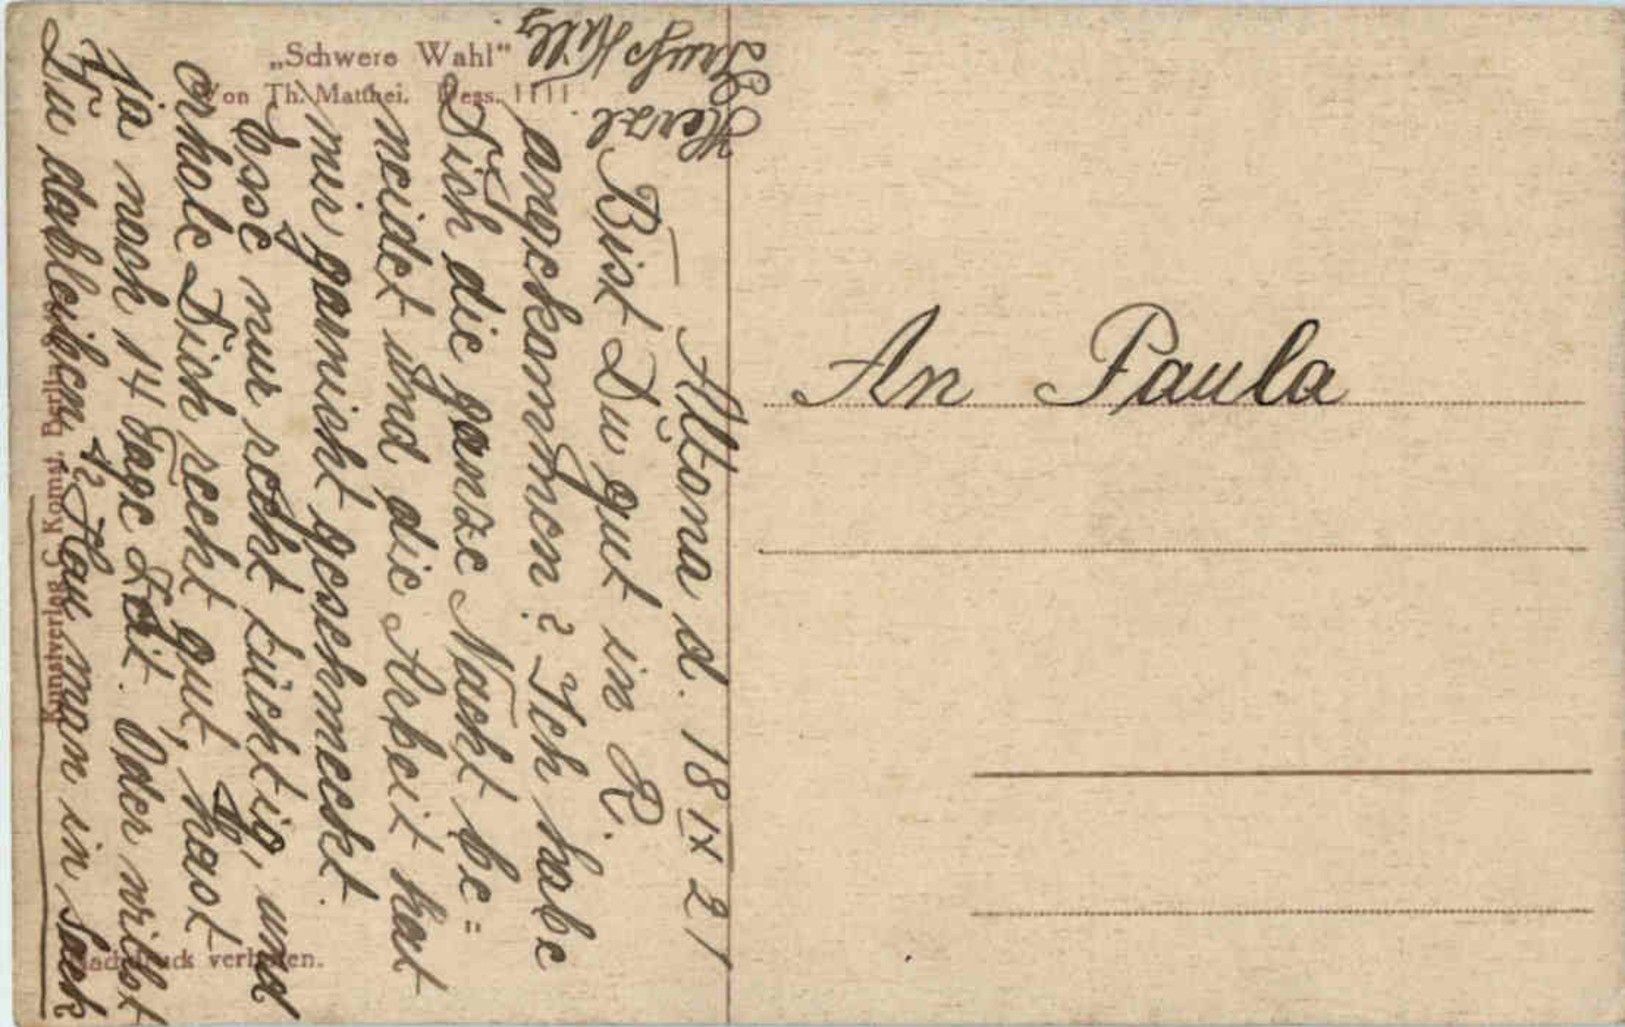 „Schwere Wahl“
Von Th. Matthei. Dess. 1111
Altona d. 18 IX 21
Bist Du gut in R.
angekommen? Ich habe
Dich die ganze Nacht be=
neidet und die Arbeit hat
mir garnicht geschmeckt.
Esse nur recht tüchtig, und
erhole Dich recht gut, hast
Ja noch 14 Tage Zeit. Oder willst
Du dableiben? Hau man in Sack
Herzl
Gruß Willy
Kunstverlag C. Berlin
Nachdruck verboten.
An Paula